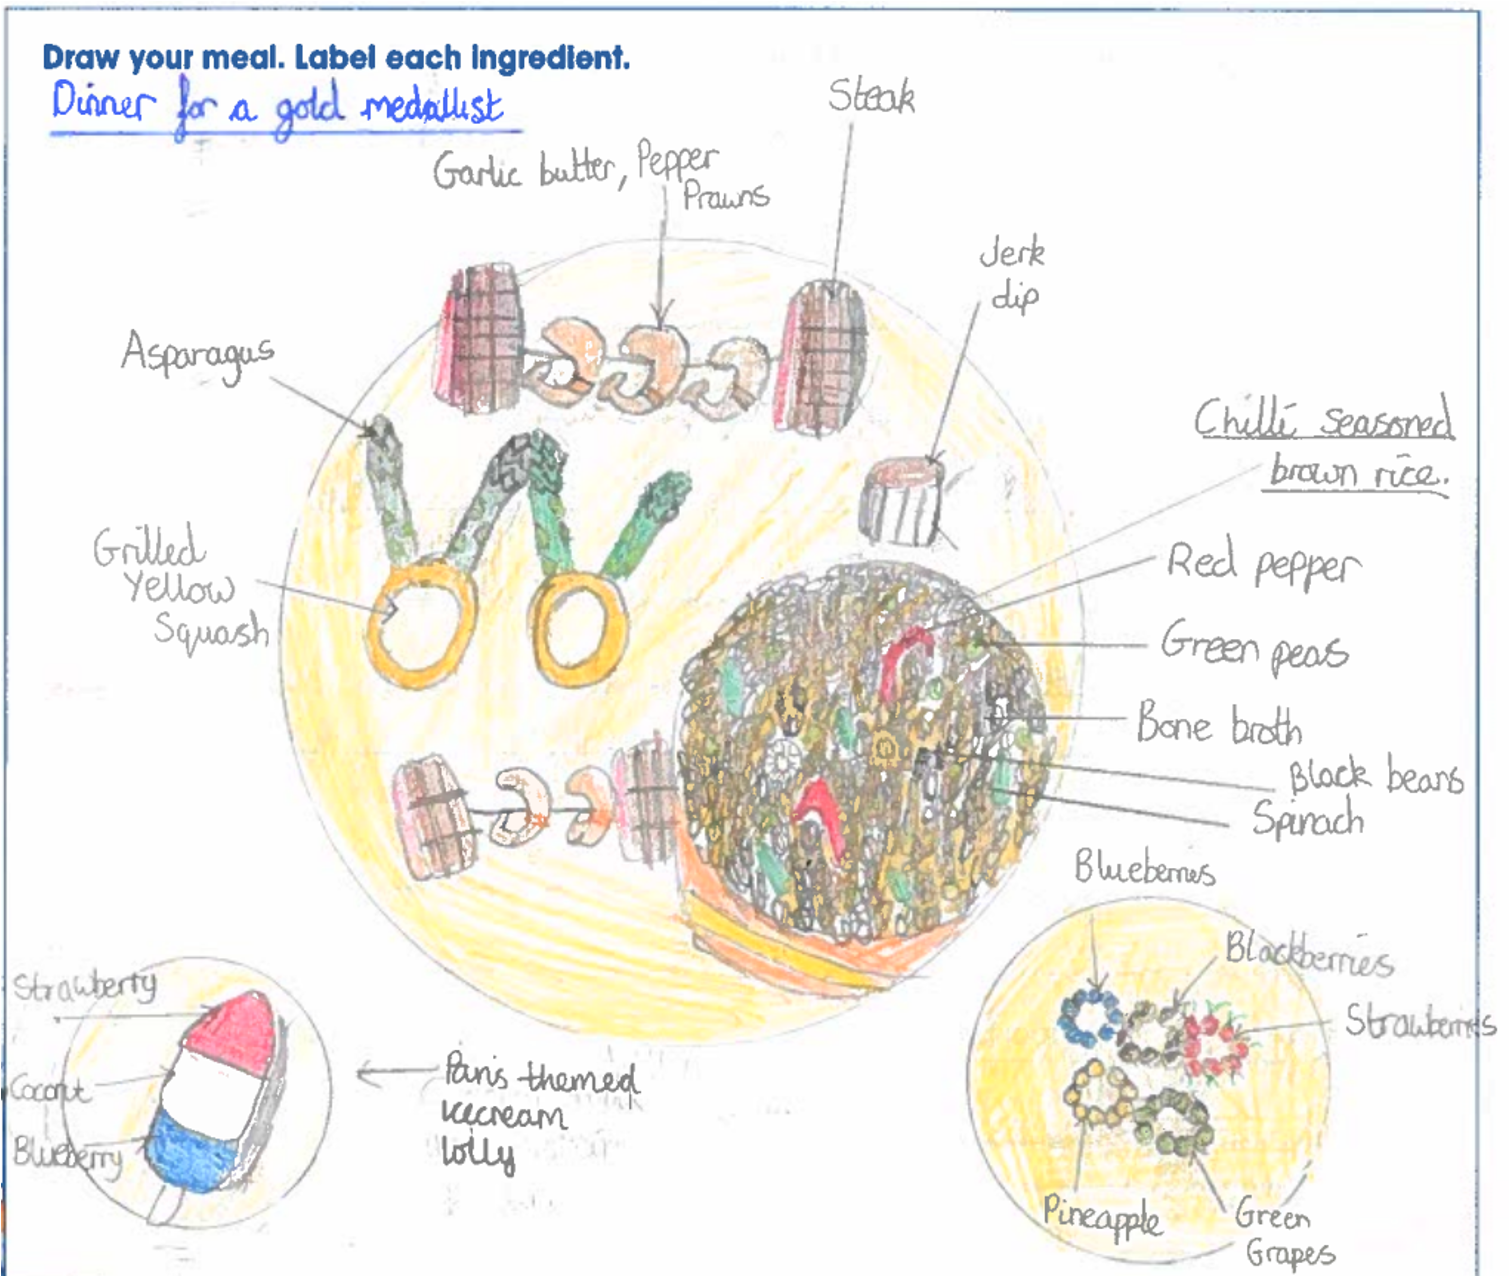 Draw your meal. Label each ingredient.
Dinner for a gold medallist
Steak
Garlic butter, Pepper
Prawns
Jerk
dip
Asparagus
Chilli seasoned
brown rice.
Grilled
Yellow
Squash
Red pepper
Green peas
Bone broth
Black beans
Spinach
Blueberries
Blackberries
Strawberries
Pineapple
Green
Grapes
Strawberry
Coconut
Blueberry
Paris themed
icecream
lolly